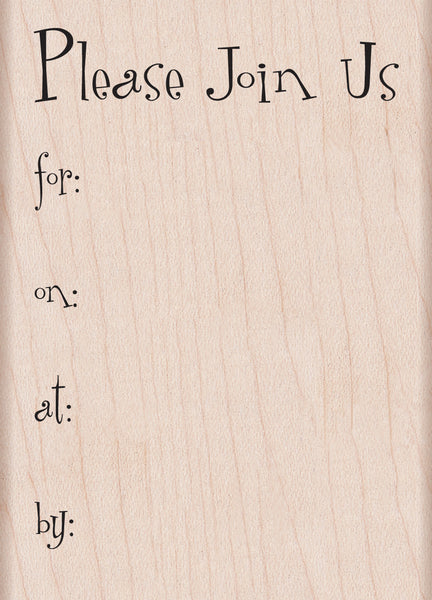 Please Join Us
for:
on:
at:
by: